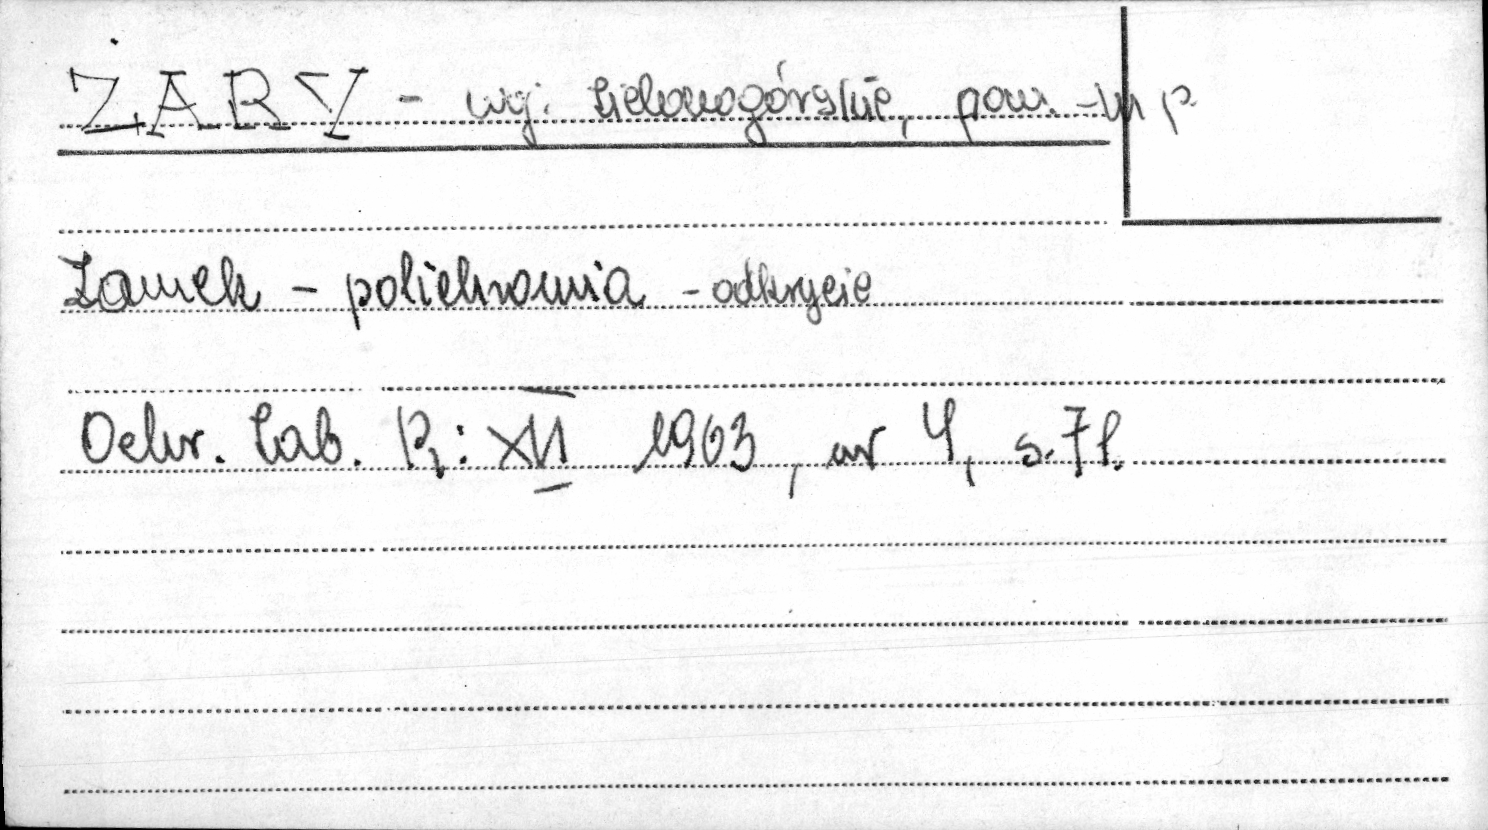 ŻARY - woj. zielonogórskie, pow.
Zamek - polichromia - odkrycie
Ochr. Zab. R: XVI 1963, nr 4, s. 71.